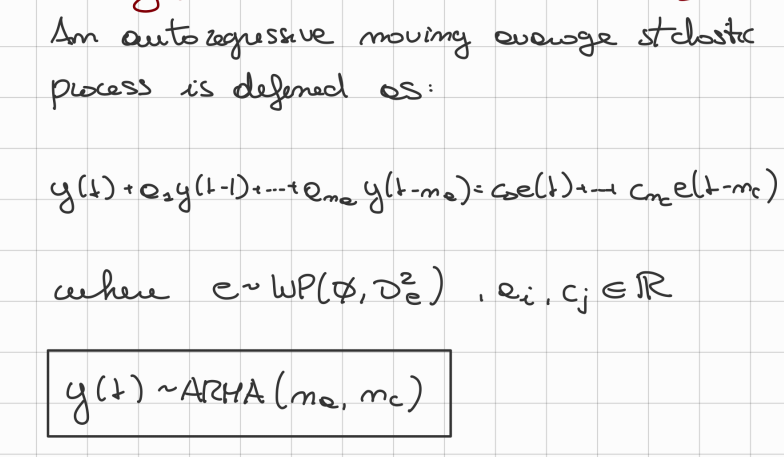 An autoregressive moving average stclostic
process is defened as:
y(t)+a₁y(t-1)+...+aₙₐ y(t-nₐ)=c₀e(t)+...+ cₙ꜀ e(t-n꜀)
where e~WP(∅, σ²ₑ) , aᵢ, cⱼ ∈ ℝ
y(t) ~ARMA(nₐ, n꜀)